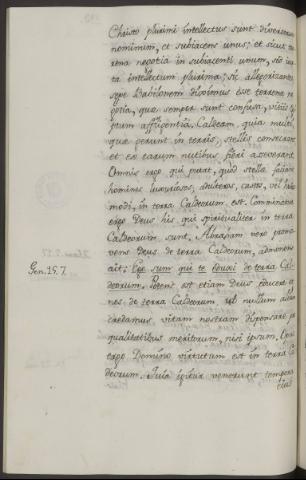 Christo plurimi Intellectus sunt diversarum
nominum, et subiacens unus; et sicut
rena negotia in subiacenti unum, sed iux-
ta intellectum plurima; sic allegorizantes
sepe Babilonem diximus esse terrena ne-
gotia, quæ semper sunt confusa, vitiis
affligentia, Caldeam, quia multi,
quæ gerunt in terris, stellis consecrant
et ex earum nutibus, fieri asseverant.
Omnis ergo qui putat, quod stella faciant
homines luxuriosos, adulteros, castos, vel
modi, in terra Caldeorum est. Comminatur
ergo Deus his, qui spiritualiter in terra
Caldeorum sunt, Abraham vero promo-
vens Deus de terra Caldeorum, admonens
Gen. 15. 7. ait: Ego sum qui te eduxi de terra Cal-
deorum. Potens est etiam Deus educere
nos de terra Caldeorum, nullum alium
credamus, vitam nostram dispensare pro
qualitatibus meritorum, nisi ipsum.
ergo Domino virtutum est in terra Cal-
deorum. Quia igitur venerunt tempora